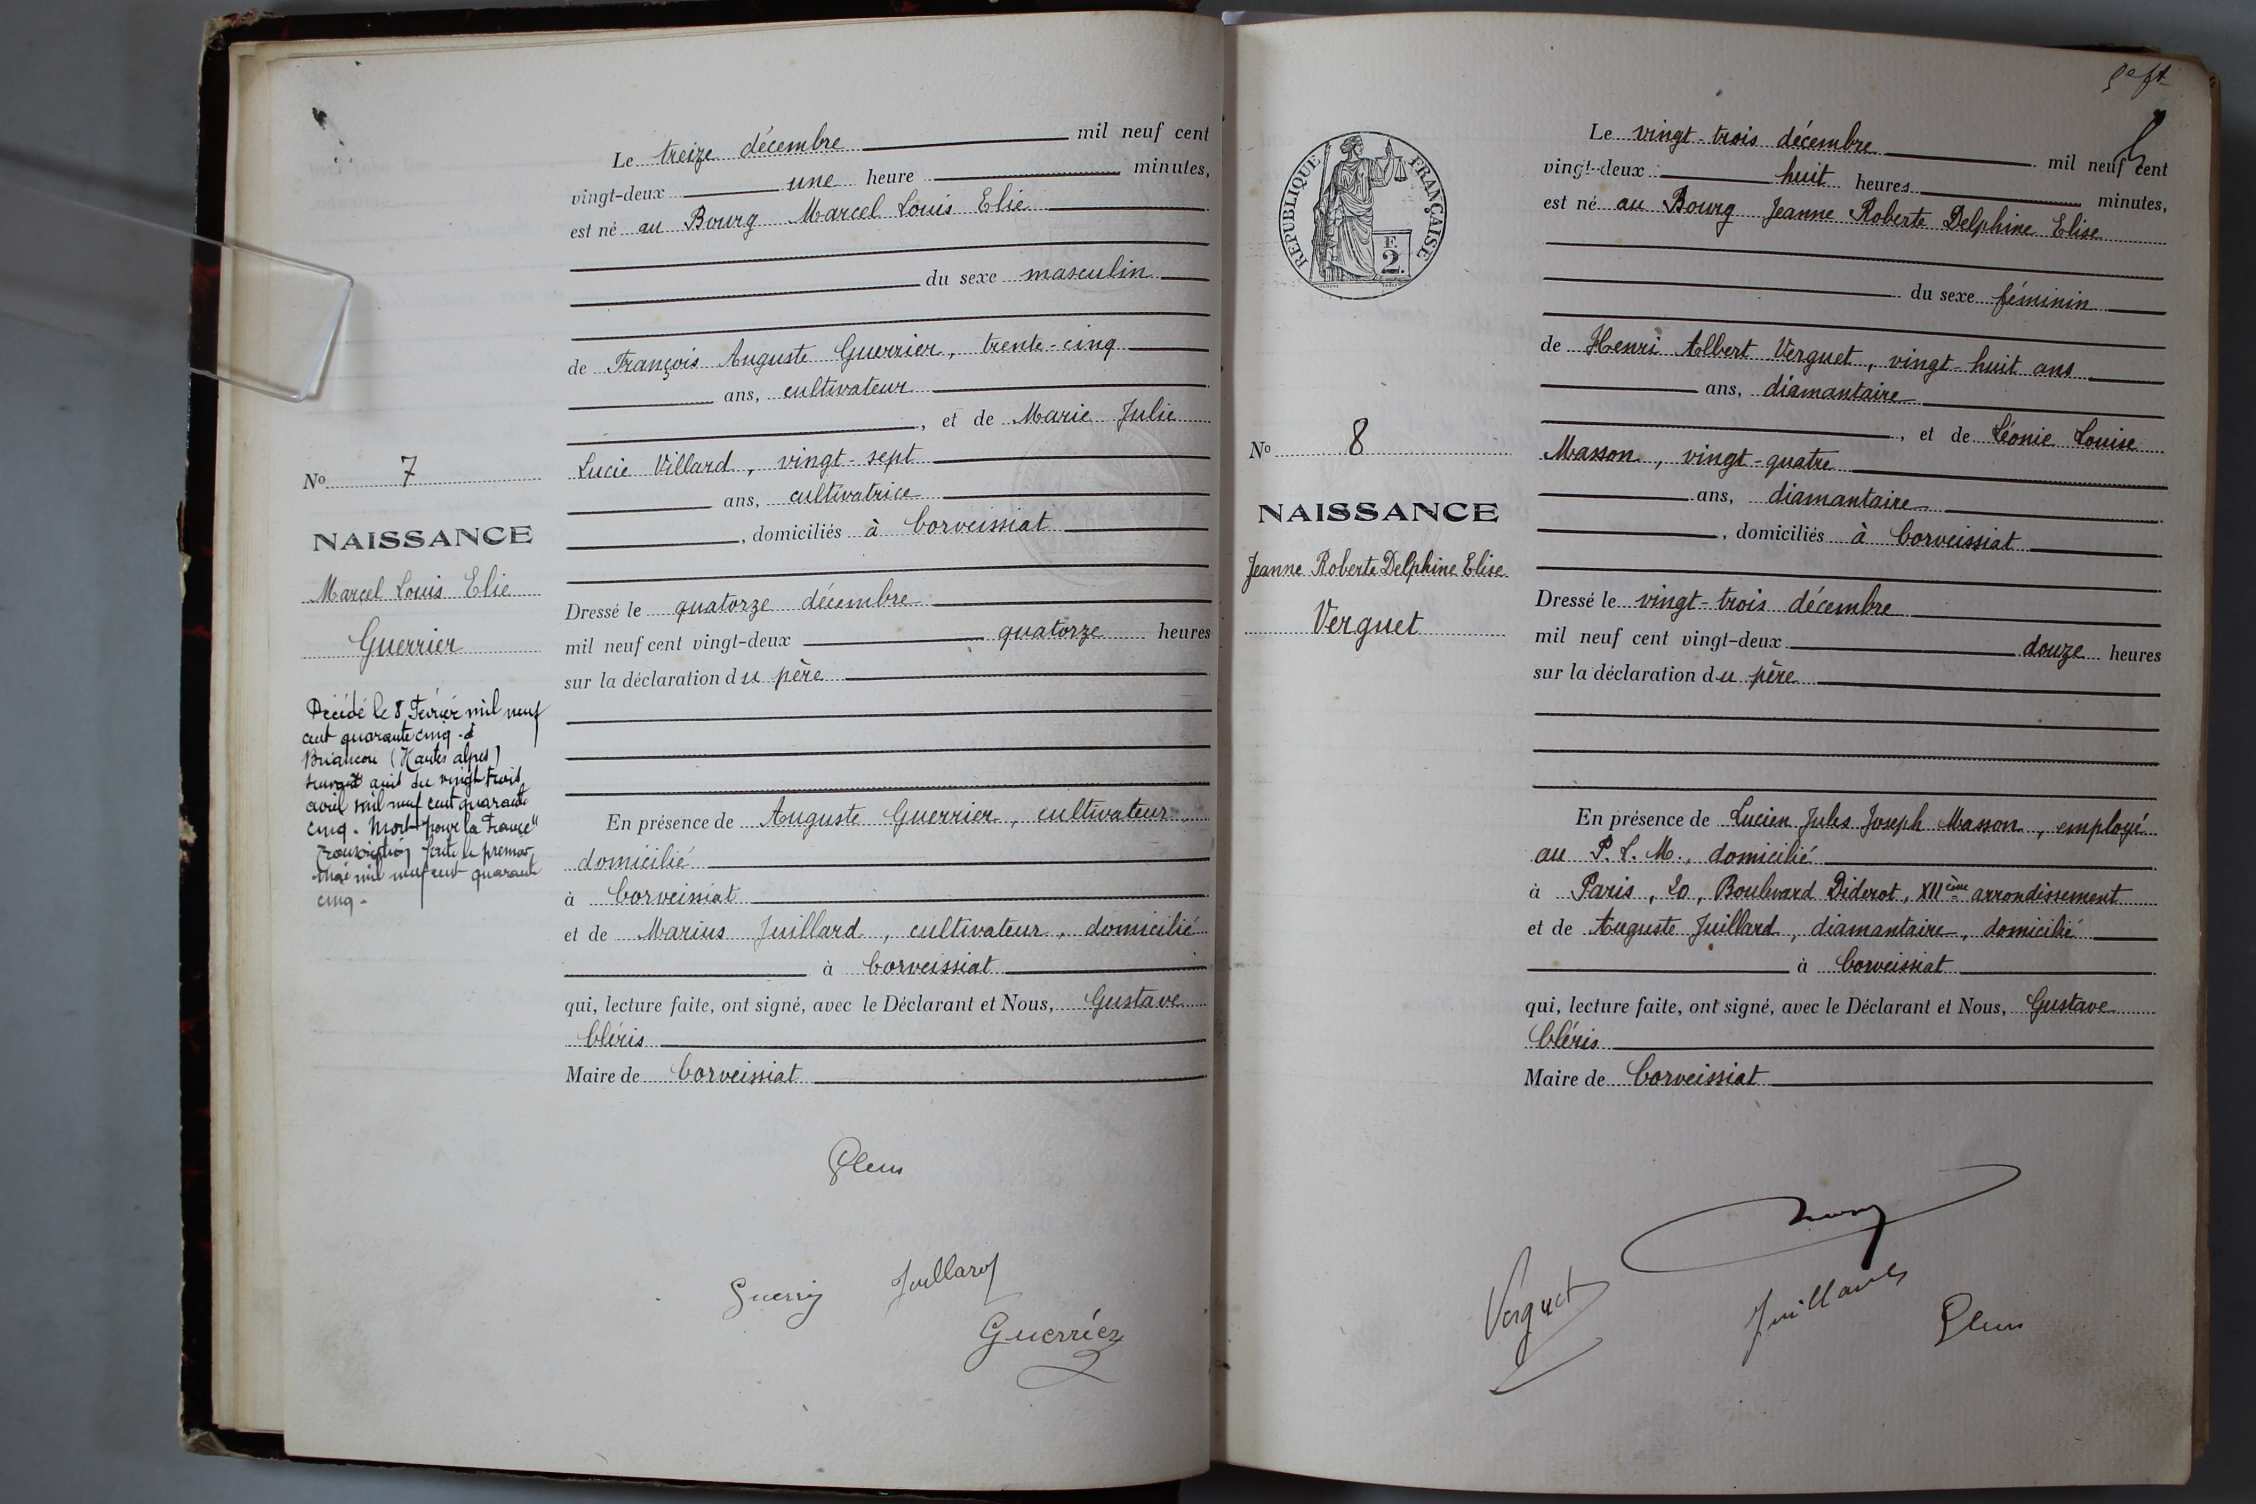 Le treize décembre mil neuf cent
vingt-deux une heure minutes,
est né au Bourg Marcel Louis Elie
du sexe masculin
de François Auguste Guerrier, trente-cinq
ans, cultivateur
, et de Marie Julie
Lucie Villard, vingt-sept
ans, cultivatrice
, domiciliés à Corveissiat
Dressé le quatorze décembre
mil neuf cent vingt-deux quatorze heures
sur la déclaration du père
En présence de Auguste Guerrier, cultivateur,
domicilié
à Corveissiat
et de Marius Juillard, cultivateur, domicilié
à Corveissiat
qui, lecture faite, ont signé, avec le Déclarant et Nous, Gustave
Cléris
Maire de Corveissiat
No 7
NAISSANCE
Marcel Louis Elie
Guerrier
Décédé le 8 Février mil neuf
cent quarante cinq à
Briançon (Hautes alpes)
suivant avis du vingt trois
avril mil neuf cent quarante
cinq. Mort "pour la France"
Transcription faite le premier
mai mil neuf cent quarante
cinq.
Juillard
Guerrier
RÉPUBLIQUE FRANÇAISE
F.
2.
Le vingt-trois décembre mil neuf cent
vingt-deux huit heures minutes,
est né au Bourg Jeanne Roberte Delphine Elise
du sexe féminin
de Henri Albert Verguet, vingt-huit ans
ans, diamantaire
, et de Léonie Louise
Masson, vingt-quatre
ans, diamantaire
, domiciliés à Corveissiat
Dressé le vingt-trois décembre
mil neuf cent vingt-deux douze heures
sur la déclaration du père
En présence de Lucien Jules Joseph Masson, employé
au P. L. M., domicilié
à Paris, 20, Boulevard Diderot, XIIème arrondissement
et de Auguste Juillard, diamantaire, domicilié
à Corveissiat
qui, lecture faite, ont signé, avec le Déclarant et Nous, Gustave
Cléris
Maire de Corveissiat
No 8
NAISSANCE
Jeanne Roberte Delphine Elise
Verguet
Verguet
Juillard